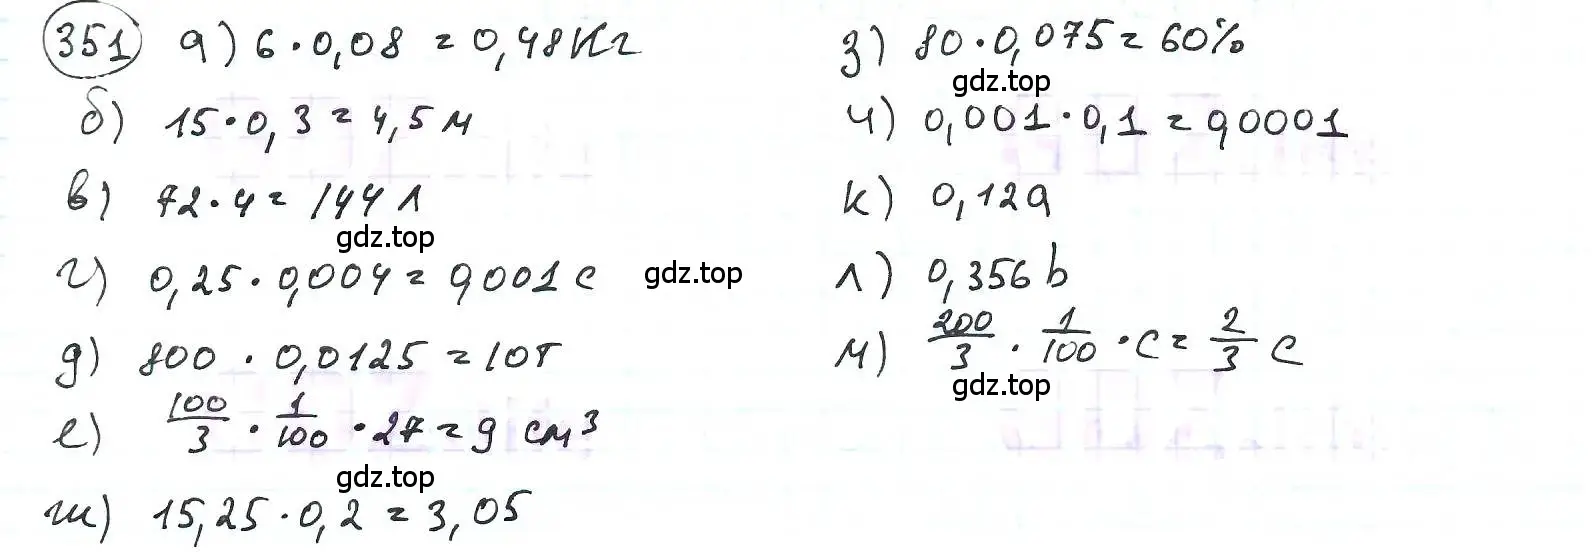 351 а) 6 · 0,08 = 0,48 кг
б) 15 · 0,3 = 4,5 м
в) 72 · 4 = 144 л
gdz.top
г) 0,25 · 0,004 = 0,001 с
gdz.top
д) 800 · 0,0125 = 10т
е) 100/3 · 1/100 · 27 = 9 см³
gdz.top
ж) 15,25 · 0,2 = 3,05
з) 80 · 0,075 = 60%
gdz.top
и) 0,001 · 0,1 = 0,0001
к) 0,12a
л) 0,356 b
м) 200/3 · 1/100 · c = 2/3 c
gdz.top